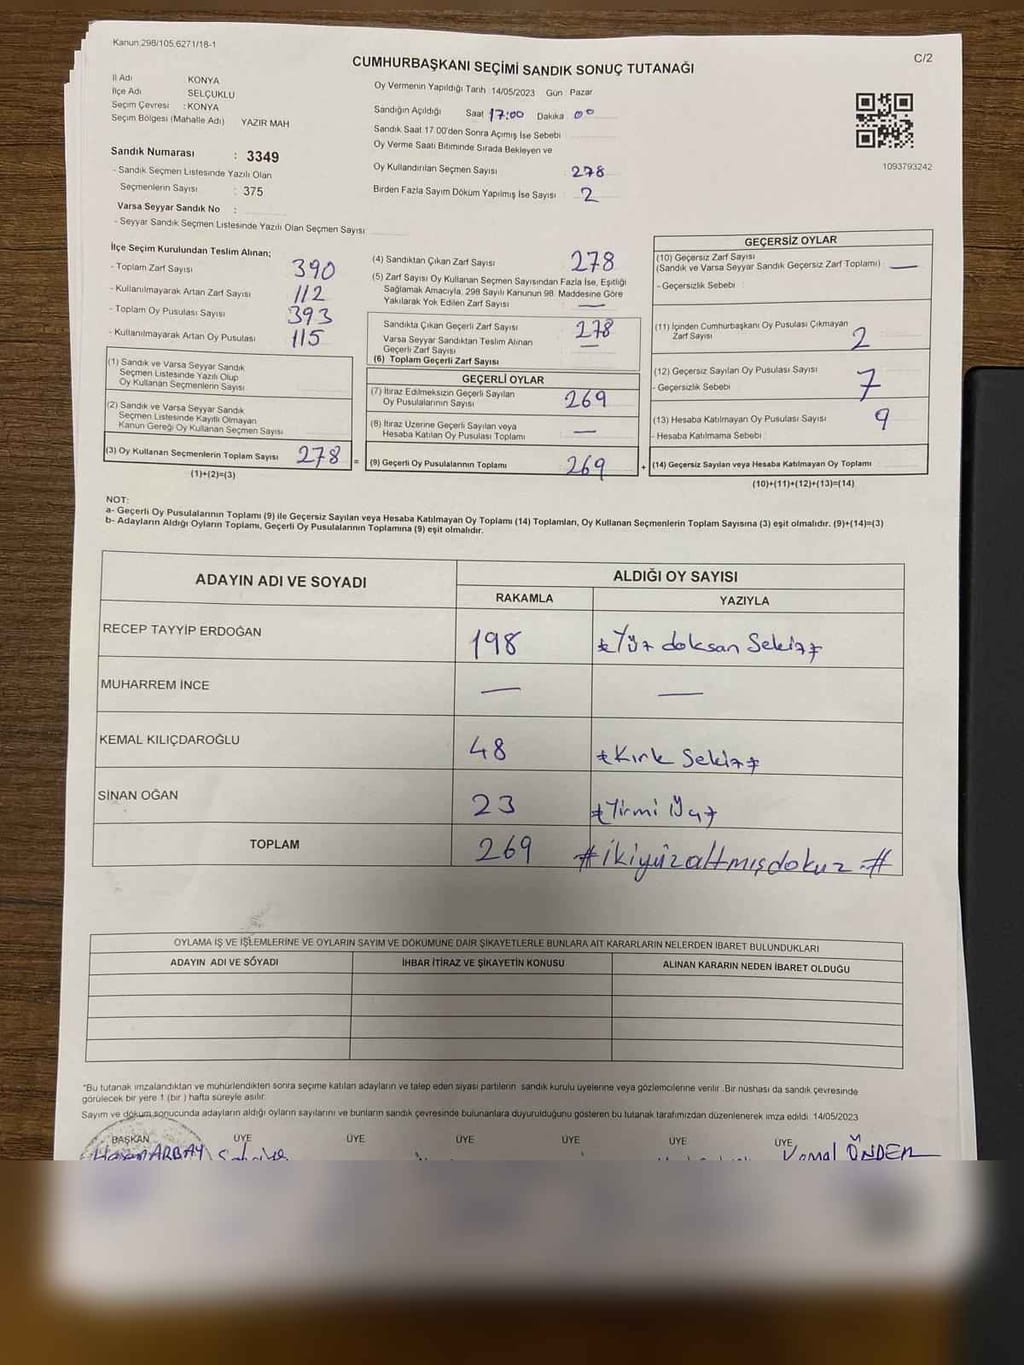 Kanun.298/105.6271/18-1
C/2
CUMHURBAŞKANI SEÇİMİ SANDIK SONUÇ TUTANAĞI
İl Adı KONYA
İlçe Adı SELÇUKLU
Seçim Çevresi : KONYA
Seçim Bölgesi (Mahalle Adı) YAZIR MAH
Sandık Numarası : 3349
- Sandık Seçmen Listesinde Yazılı Olan
Seçmenlerin Sayısı : 375
Varsa Seyyar Sandık No :
- Seyyar Sandık Seçmen Listesinde Yazılı Olan Seçmen Sayısı
Oy Vermenin Yapıldığı Tarih 14/05/2023 Gün Pazar
Sandığın Açıldığı Saat 17:00 Dakika 00
Sandık Saat 17.00'den Sonra Açımış İse Sebebi
Oy Verme Saati Bitiminde Sırada Bekleyen ve
Oy Kullandırılan Seçmen Sayısı 278
Birden Fazla Sayım Döküm Yapılmış İse Sayısı 2
1093793242
İlçe Seçim Kurulundan Teslim Alınan;
- Toplam Zarf Sayısı 390
- Kullanılmayarak Artan Zarf Sayısı 112
- Toplam Oy Pusulası Sayısı 393
- Kullanılmayarak Artan Oy Pusulası 115
(1) Sandık ve Varsa Seyyar Sandık
Seçmen Listesinde Yazılı Olup
Oy Kullanan Seçmenlerin Sayısı
(2) Sandık ve Varsa Seyyar Sandık
Seçmen Listesinde Kayıtlı Olmayan
Kanun Gereği Oy Kullanan Seçmen Sayısı
(3) Oy Kullanan Seçmenlerin Toplam Sayısı 278 =
(1)+(2)=(3)
(4) Sandıktan Çıkan Zarf Sayısı 278
(5) Zarf Sayısı Oy Kullanan Seçmen Sayısından Fazla İse, Eşitliği
Sağlamak Amacıyla, 298 Sayılı Kanunun 98. Maddesine Göre
Yakılarak Yok Edilen Zarf Sayısı —
Sandıkta Çıkan Geçerli Zarf Sayısı 278
Varsa Seyyar Sandıktan Teslim Alınan
Geçerli Zarf Sayısı —
(6) Toplam Geçerli Zarf Sayısı
GEÇERLİ OYLAR
(7) İtiraz Edilmeksizin Geçerli Sayılan
Oy Pusulalarının Sayısı 269
(8) İtiraz Üzerine Geçerli Sayılan veya
Hesaba Katılan Oy Pusulası Toplamı —
(9) Geçerli Oy Pusulalarının Toplamı 269 +
GEÇERSİZ OYLAR
(10) Geçersiz Zarf Sayısı
(Sandık ve Varsa Seyyar Sandık Geçersiz Zarf Toplamı) —
- Geçersizlik Sebebi
(11) İçinden Cumhurbaşkanı Oy Pusulası Çıkmayan
Zarf Sayısı 2
(12) Geçersiz Sayılan Oy Pusulası Sayısı 7
- Geçersizlik Sebebi
(13) Hesaba Katılmayan Oy Pusulası Sayısı 9
- Hesaba Katılmama Sebebi
(14) Geçersiz Sayılan veya Hesaba Katılmayan Oy Toplamı
(10)+(11)+(12)+(13)=(14)
NOT:
a- Geçerli Oy Pusulasının Toplamı (9) ile Geçersiz Sayılan veya Hesaba Katılmayan Oy Toplamı (14) Toplamları, Oy Kullanan Seçmenlerin Toplam Sayısına (3) eşit olmalıdır. (9)+(14)=(3)
b- Adayların Aldığı Oyların Toplamı, Geçerli Oy Pusulalarının Toplamına (9) eşit olmalıdır.
ADAYIN ADI VE SOYADI ALDIĞI OY SAYISI
RAKAMLA YAZIYLA
RECEP TAYYİP ERDOĞAN 198 Yüz doksan Sekiz
MUHARREM İNCE — —
KEMAL KILIÇDAROĞLU 48 Kırk Sekiz
SİNAN OĞAN 23 Yirmi Üç
TOPLAM 269 #ikiyüzaltmışdokuz.#
OYLAMA İŞ VE İŞLEMLERİNE VE OYLARIN SAYIM VE DÖKÜMÜNE DAİR ŞİKAYETLERLE BUNLARA AİT KARARLARIN NELERDEN İBARET BULUNDUKLARI
ADAYIN ADI VE SOYADI İHBAR İTİRAZ VE ŞİKAYETİN KONUSU ALINAN KARARIN NEDEN İBARET OLDUĞU
*Bu tutanak imzalandıktan ve mühürlendikten sonra seçime katılan adayların ve talep eden siyasi partilerin sandık kurulu üyelerine veya gözlemcilerine verilir. Bir nüshası da sandık çevresinde
görülecek bir yere 1 (bir) hafta süreyle asılır.
Sayım ve döküm sonucunda adayların aldığı oyların sayılarını ve bunların sandık çevresinde bulunanlara duyurulduğunu gösteren bu tutanak tarafımızdan düzenlenerek imza edildi. 14/05/2023
BAŞKAN ÜYE ÜYE ÜYE ÜYE ÜYE ÜYE
Hasan ARBAY Kemal ÖNDER